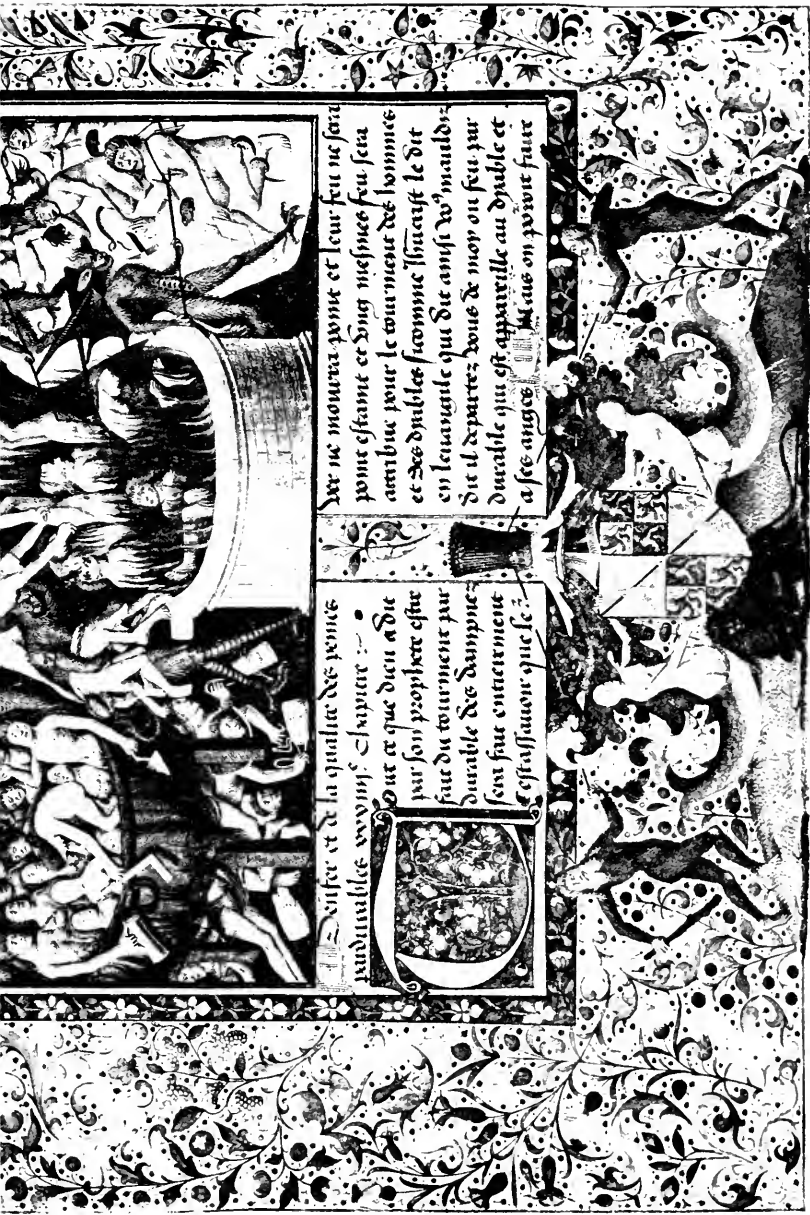 Denfer et de la qualite des peines
pardurables Chapitre :~
Tout ce que dieu a dit
par son prophete estre
fait du tourment par
durable des dampnez
sera fait entierement
Cestassauoir que le
ver ne mourra point et leur feu ne sera
point estaint et vng mesmes feu sera
atribue pour le tourment des hommes
et des dyables sicomme Ihucrist le dit
en leuangile qui dit ainsi vo⁹ mauldiz
dit il departez vous de moy ou feu par
durable qui est appareille au dyable et
a ses anges Mais on poroit faire